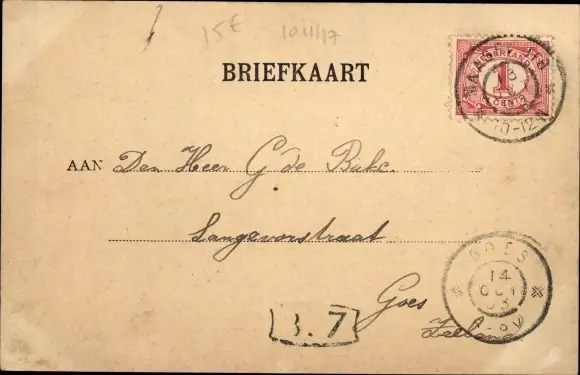 15€ 10/11/17
BRIEFKAART
NEDERLAND
1
CENT
10-12
AAN Den Heer G de Bake.
Langevorstraat
GOES
14
OCT
03
Goes
B. 7
Zeeland